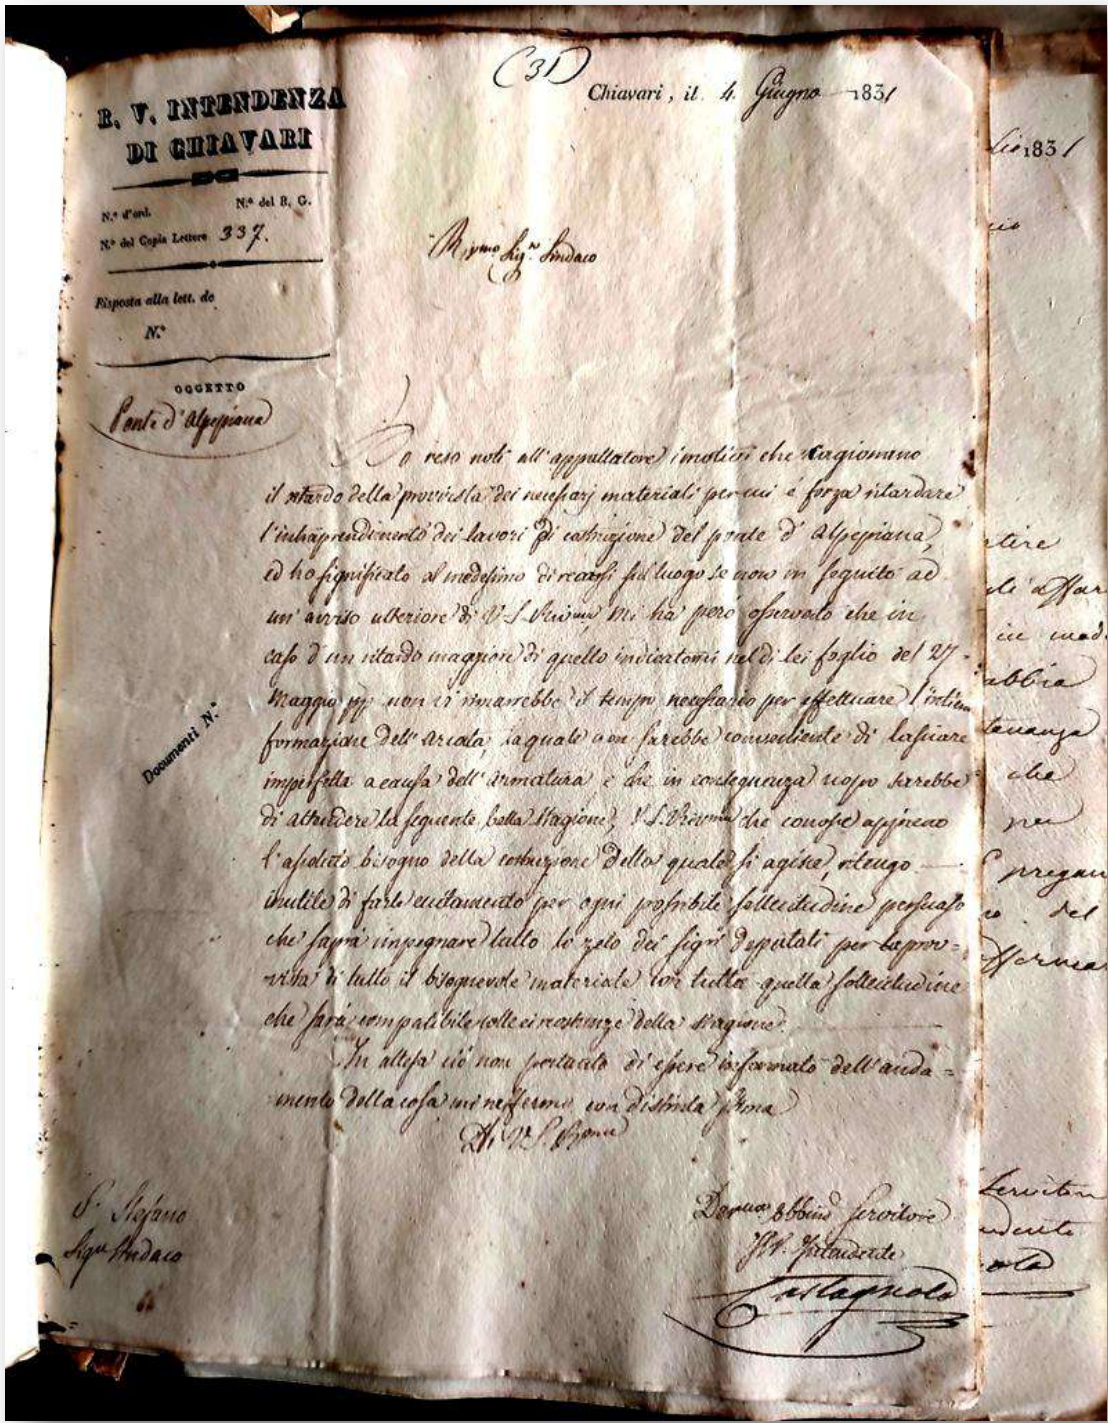 (31)
Chiavari, il 4 Giugno 1831
R. V. INTENDENZA
DI CHIAVARI
N.º d'ord. N.º del R. G.
N.º del Copia Lettere 337.
Risposta alla lett. de
N.º
OGGETTO
Ponte d'Alpepiana
Documenti N.º
Sig.re Sindaco
Ho reso noti all'appaltatore i motivi che cagionano
il ritardo della provvista dei necessarj materiali per cui è forza ritardare
l'intraprendimento dei lavori di costruzione del ponte d'Alpepiana,
ed ho significato al medesimo di recarsi sul luogo se non in seguito ad
un avviso ulteriore di V. S. mi ha però osservato che in
caso d'un ritardo maggiore di quello indicatomi nel di lei foglio del 27
Maggio pp. non vi rimarrebbe il tempo necessario per effettuare l'intiera
formazione dell'arcata, la quale non sarebbe conveniente di lasciare
imperfetta a causa dell'armatura, e che in conseguenza uopo sarebbe
di attendere la seguente bella stagione, V. S. che conosce appieno
l'assoluto bisogno della costruzione della quale si agisce, ritengo
inutile di farle eccitamento per ogni possibile sollecitudine persuaso
che saprà impegnare tutto lo zelo dei Sigri deputati per la prov=
vista di tutto il bisognevole materiale con tutta quella sollecitudine
che sarà compatibile colle circostanze della stagione.
In attesa ciò non pertanto di essere informato dell'anda=
mento della cosa mi raffermo con distinta stima
Di V. S.
S. Stefano
Sig.re Sindaco
Servitore
Intendente
Castagnola
1831